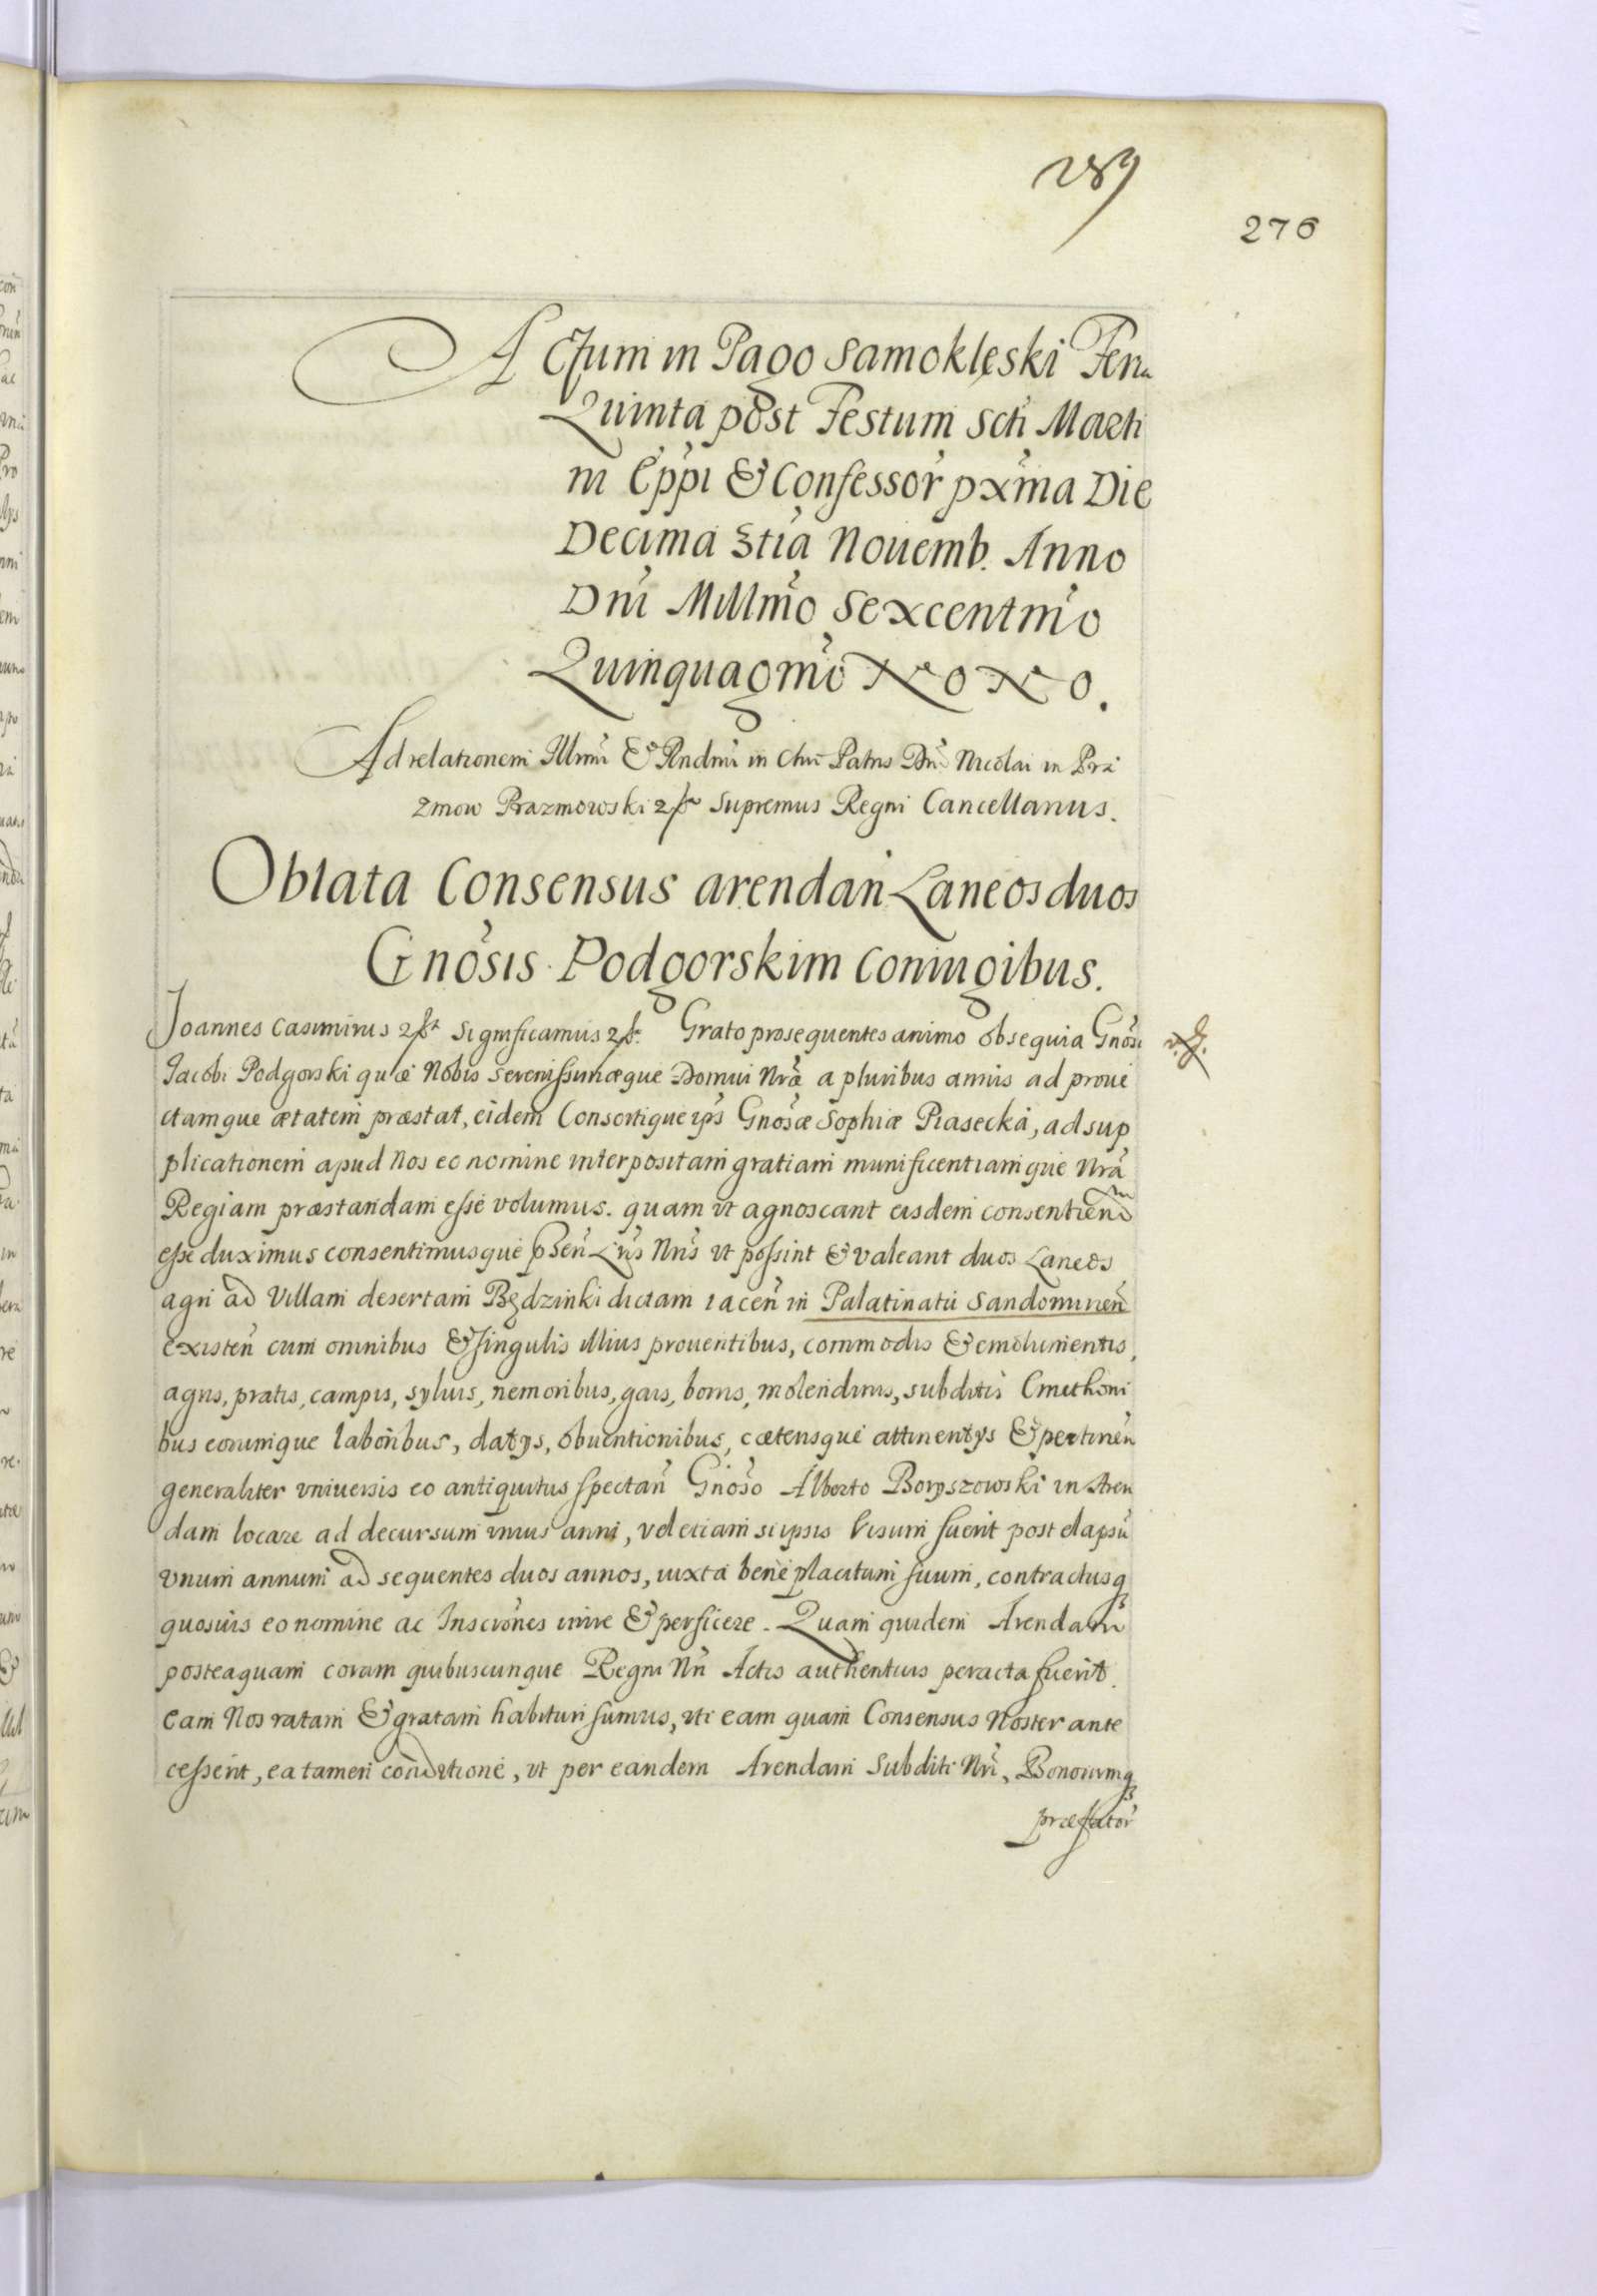 289
276
Actum in Pago Samoklęski Feria
Quinta post Festum Scti Marti
ni Eppi & Confessor pxma Die
Decima 3tia Nouemb. Anno
Dni Millmo Sexcentmo
Quinquagmo NoNo.
Ad relationem Illmi & Rndmi in Chro Patris Dni Nicolai in Pra
zmow Prazmowski Supremus Regni Cancellarius.
Oblata Consensus arendan Laneos duos
Gnosis Podgorskim Coniugibus.
Joannes Casimirus Significamus Grato prosequentes animo obsequia Gnosi
Jacobi Podgorski quæ Nobis Serenissimæque Domui Nræ a pluribus annis ad proue
ctamque ætatem præstat, eidem Consortique ips Gnosæ Sophiæ Piasecka, ad sup
plicationem apud Nos eo nomine interpositam gratiam munificentiamque Nra
Regiam præstandam esse volumus. quam vt agnoscant eisdem consentiend
esse duximus consentimusque psen Lris Nris vt possint & valeant duos Laneos
agri ad Villam desertam Będzinki dictam iacen in Palatinatu Sandomirien
existen cum omnibus & singulis illius prouentibus, commodis & emolumentis,
agris, pratis, campis, syluis, nemoribus, gais, borris, molendinis, subditis Cmethoni
bus eorumque laboribus, datys, obuentionibus, cæterisque attinentys & pertinen
generaliter vniuersis eo antiquitus spectan Gnoso Alberto Boryszowski in Aren
dam locare ad decursum vnius anni, vel etiam si ipsis visum fuerit post elapsu
vnum annum ad sequentes duos annos, iuxta bene placitum suum, contractusq
quosuis eo nomine ac Inscrones inire & perficere. Quam quidem Arendam
posteaquam coram quibuscunque Regni Nri Actis authenticis peracta fuerit.
eam Nos ratam & gratam habituri sumus, vti eam quam Consensus Noster ante
cesserit, ea tamen conditione, vt per eandem Arendam Subditi Nri, Bonorumq
præfator